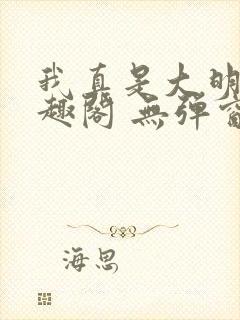 我真是大明
趣阁 無彈窗
海思